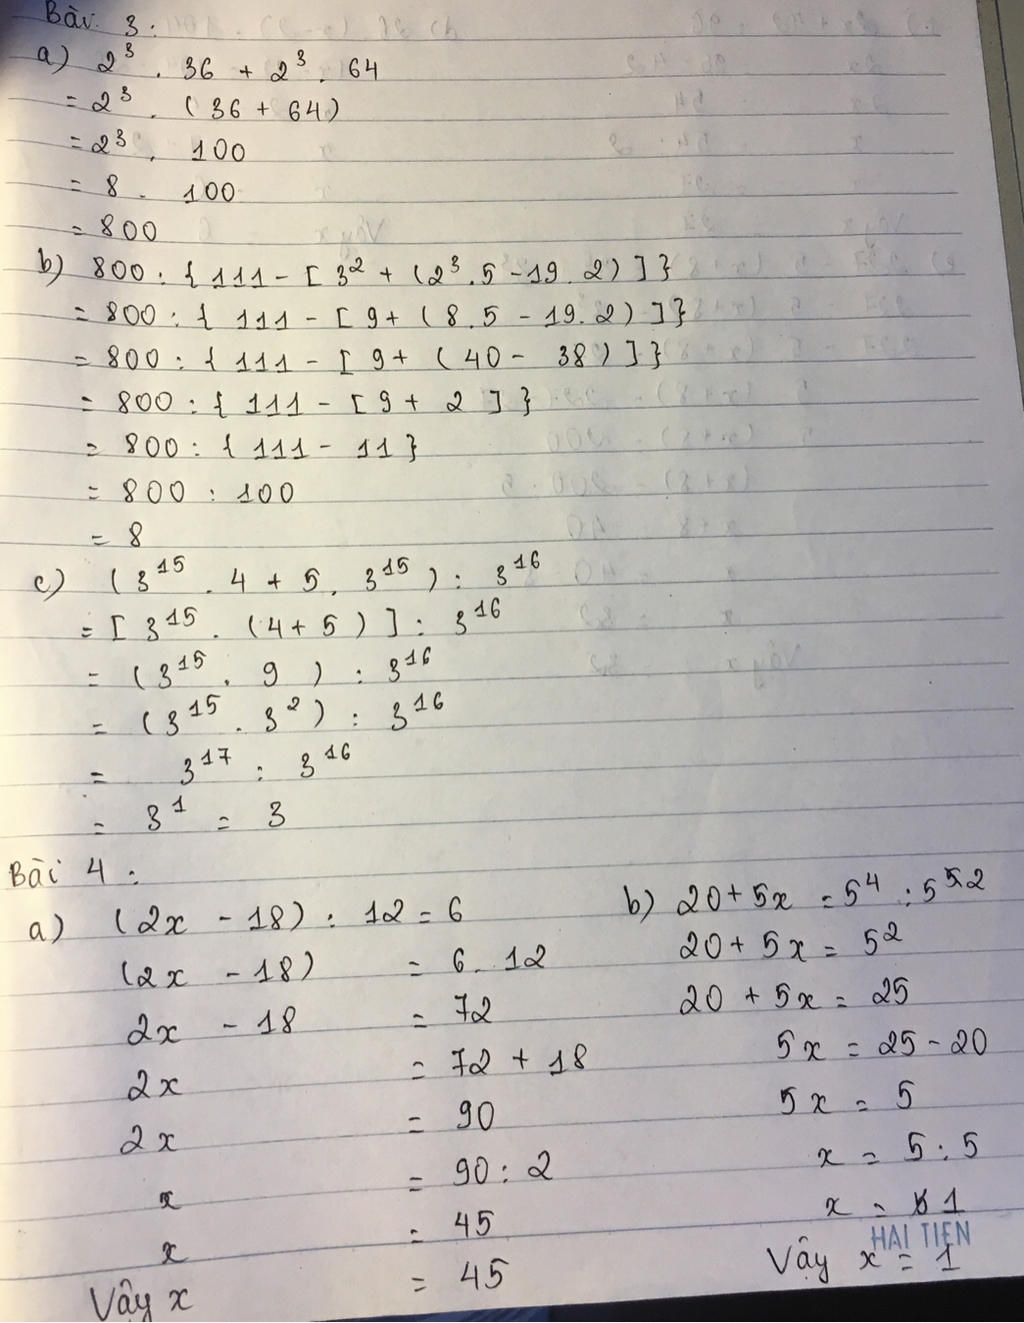 Bài 3 :
a) 2³ . 36 + 2³ . 64
= 2³ . ( 36 + 64 )
= 2³ . 100
= 8 . 100
= 800
b) 800 : { 111 - [ 3² + ( 2³ . 5 - 19 . 2 ) ] }
= 800 : { 111 - [ 9 + ( 8 . 5 - 19 . 2 ) ] }
= 800 : { 111 - [ 9 + ( 40 - 38 ) ] }
= 800 : { 111 - [ 9 + 2 ] }
= 800 : { 111 - 11 }
= 800 : 100
= 8
c) ( 3¹⁵ . 4 + 5 . 3¹⁵ ) : 3¹⁶
= [ 3¹⁵ . ( 4 + 5 ) ] : 3¹⁶
= ( 3¹⁵ . 9 ) : 3¹⁶
= ( 3¹⁵ . 3² ) : 3¹⁶
= 3¹⁷ : 3¹⁶
= 3¹ = 3
Bài 4 :
a) ( 2x - 18 ) : 12 = 6
( 2x - 18 ) = 6 . 12
2x - 18 = 72
2x = 72 + 18
2x = 90
x = 90 : 2
x = 45
Vậy x = 45
b) 20 + 5x = 5⁴ : 5²
20 + 5x = 5²
20 + 5x = 25
5x = 25 - 20
5x = 5
x = 5 : 5
x = 1
HẢI TIẾN
Vậy x = 1